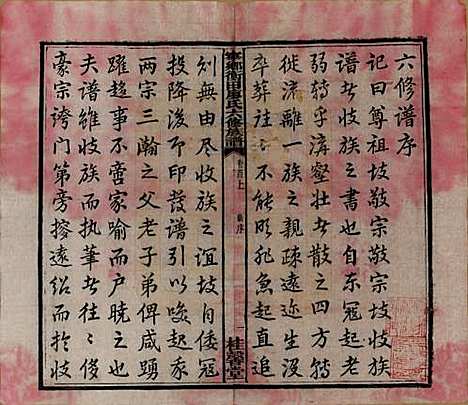 六修譜序
記曰尊祖故敬宗敬宗故收族
譜者收族之書也自東寇起老
弱轉乎溝壑壯者散之四方轉
徙流離一族之親疎遠迩生没
卒葬往〻不能明非急起直追
寧鄉衡田廖氏六修族譜
卷首上
新序
桂馨堂
則無由尽收族之誼故日倭寇
投降後亟印發譜引以喚起家
两宗三瀚之父老子弟俾咸踴
躍趨事不啻家喻而户曉之也
夫譜雖收族而执筆者往〻侈
豪宗誇门第旁搜遠紹而於收